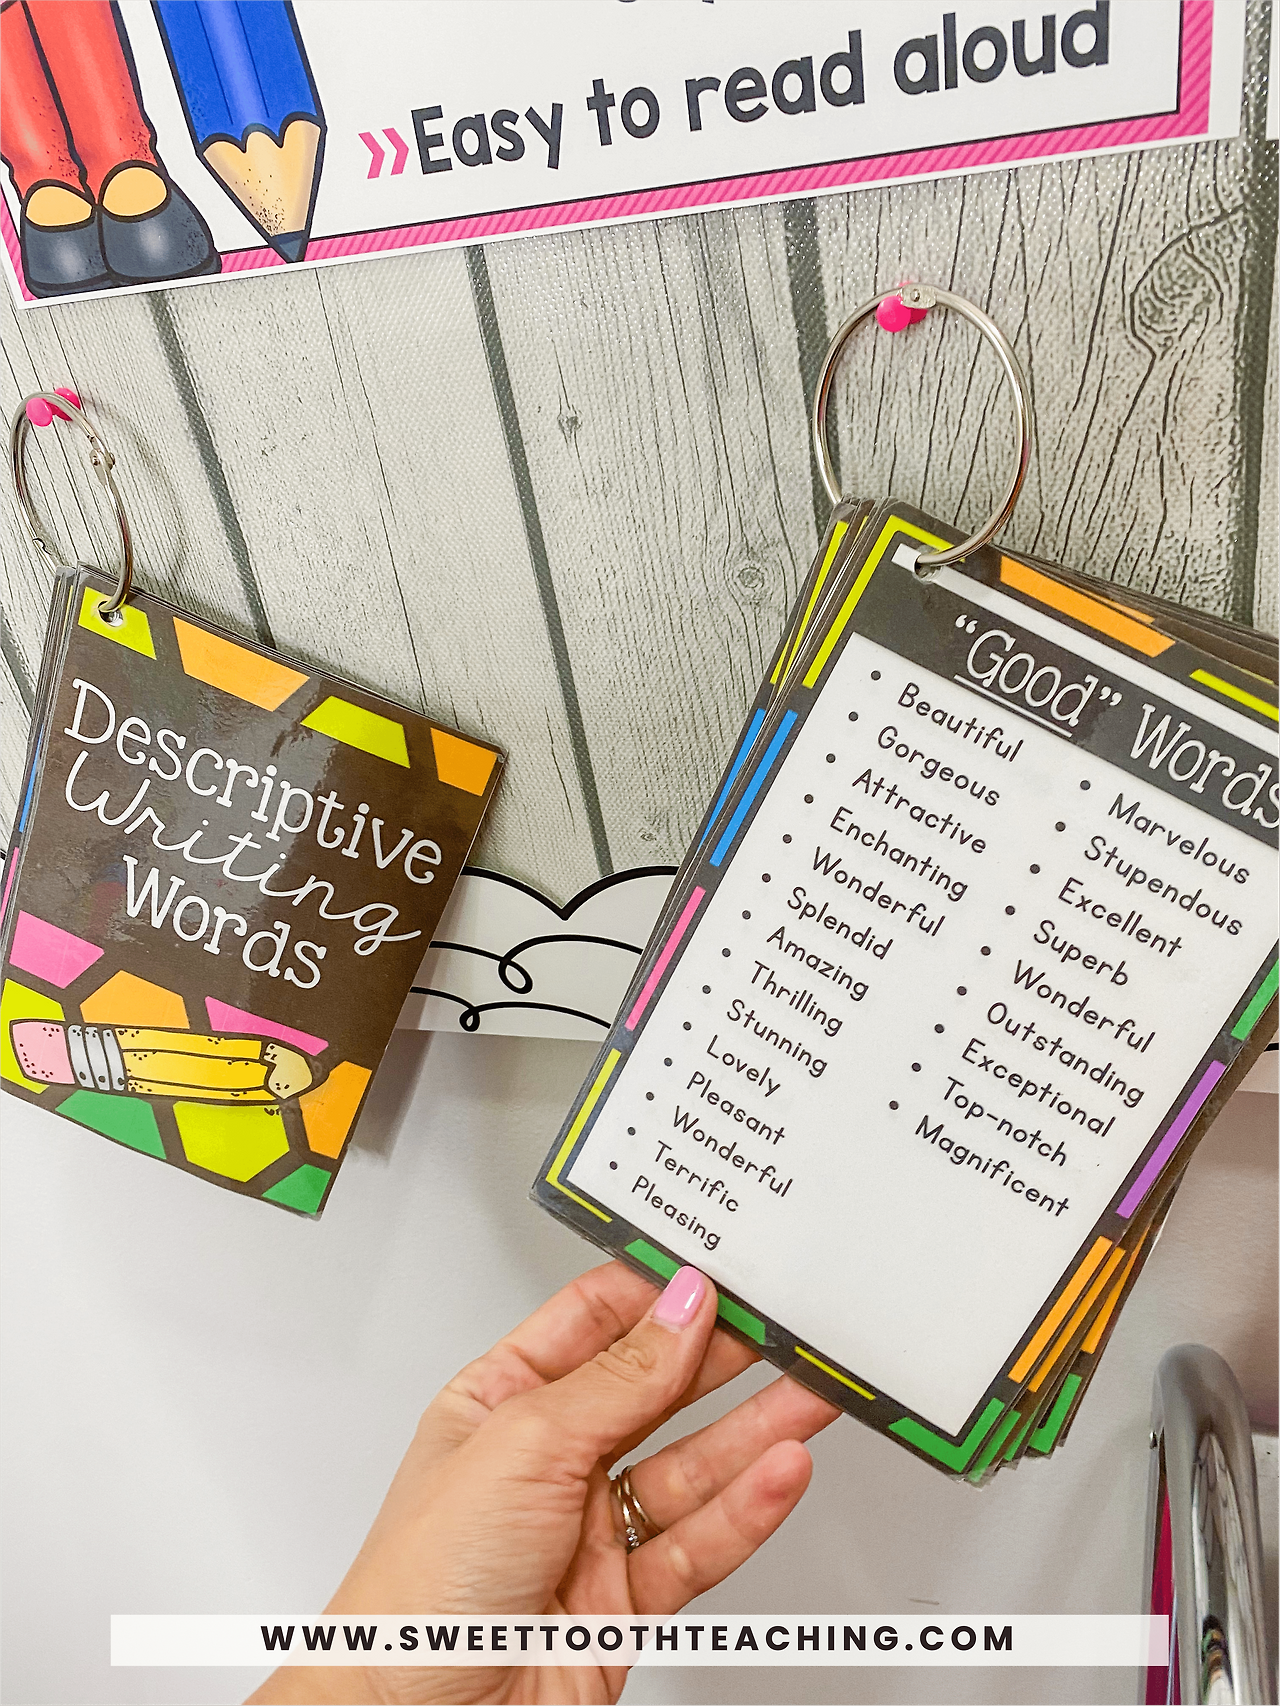 »Easy to read aloud
Descriptive
Writing
Words
"Good" Words
• Beautiful
• Gorgeous
• Attractive
• Enchanting
• Wonderful
• Splendid
• Amazing
• Thrilling
• Stunning
• Lovely
• Pleasant
• Wonderful
• Terrific
• Pleasing
• Marvelous
• Stupendous
• Excellent
• Superb
• Wonderful
• Outstanding
• Exceptional
• Top-notch
• Magnificent
WWW.SWEETTOOTHTEACHING.COM